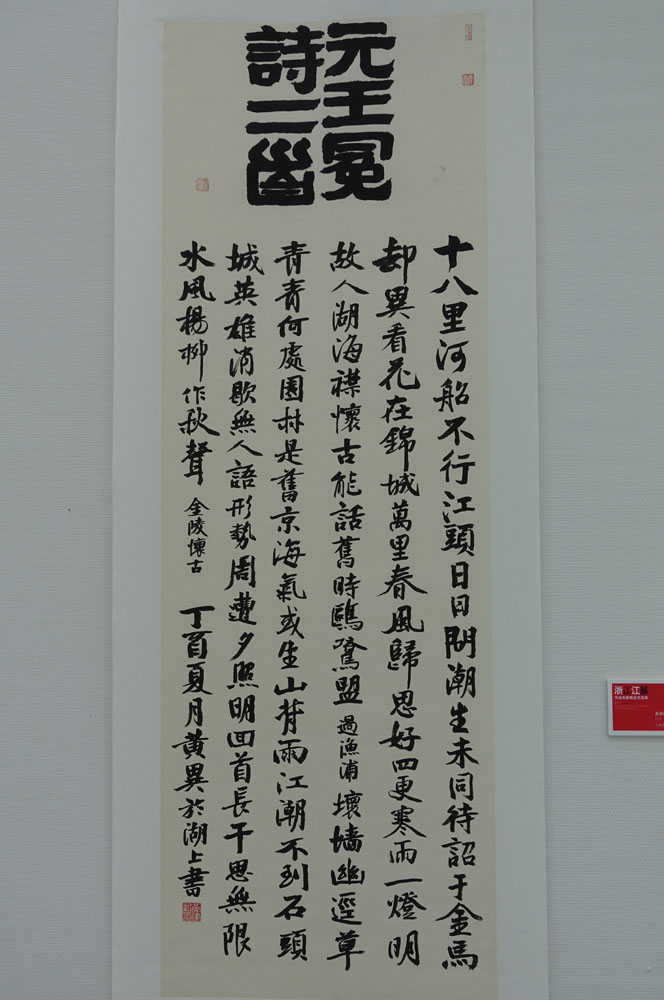 元王冕
詩二首
十八里河船不行江頭日日問潮生未同待詔于金馬
却異看花在錦城萬里春風歸思好四更寒雨一燈明
故人湖海襟懷古能話舊時鷗鷺盟 過漁浦 壞墻幽逕草
青青何處園林是舊京海氣或生山背雨江潮不到石頭
城英雄消歇無人語形勢周遭夕照明回首長干思無限
水風楊柳作秋聲 金陵懷古 丁酉夏月黃異於湖上書
浙江